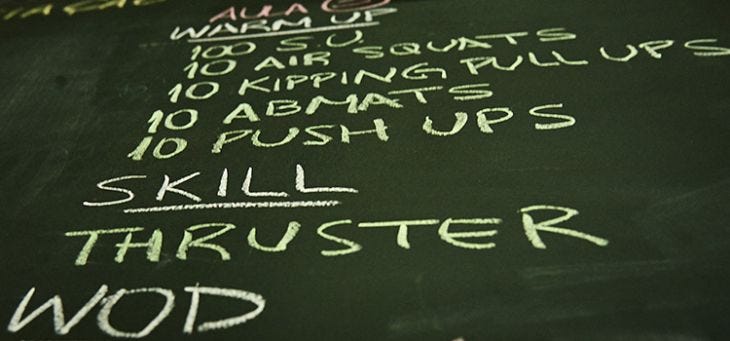 AULA
WARM UP
100 S.U.
10 AIR SQUATS
10 KIPPING PULL UPS
10 ABMATS
10 PUSH UPS
SKILL
THRUSTER
WOD